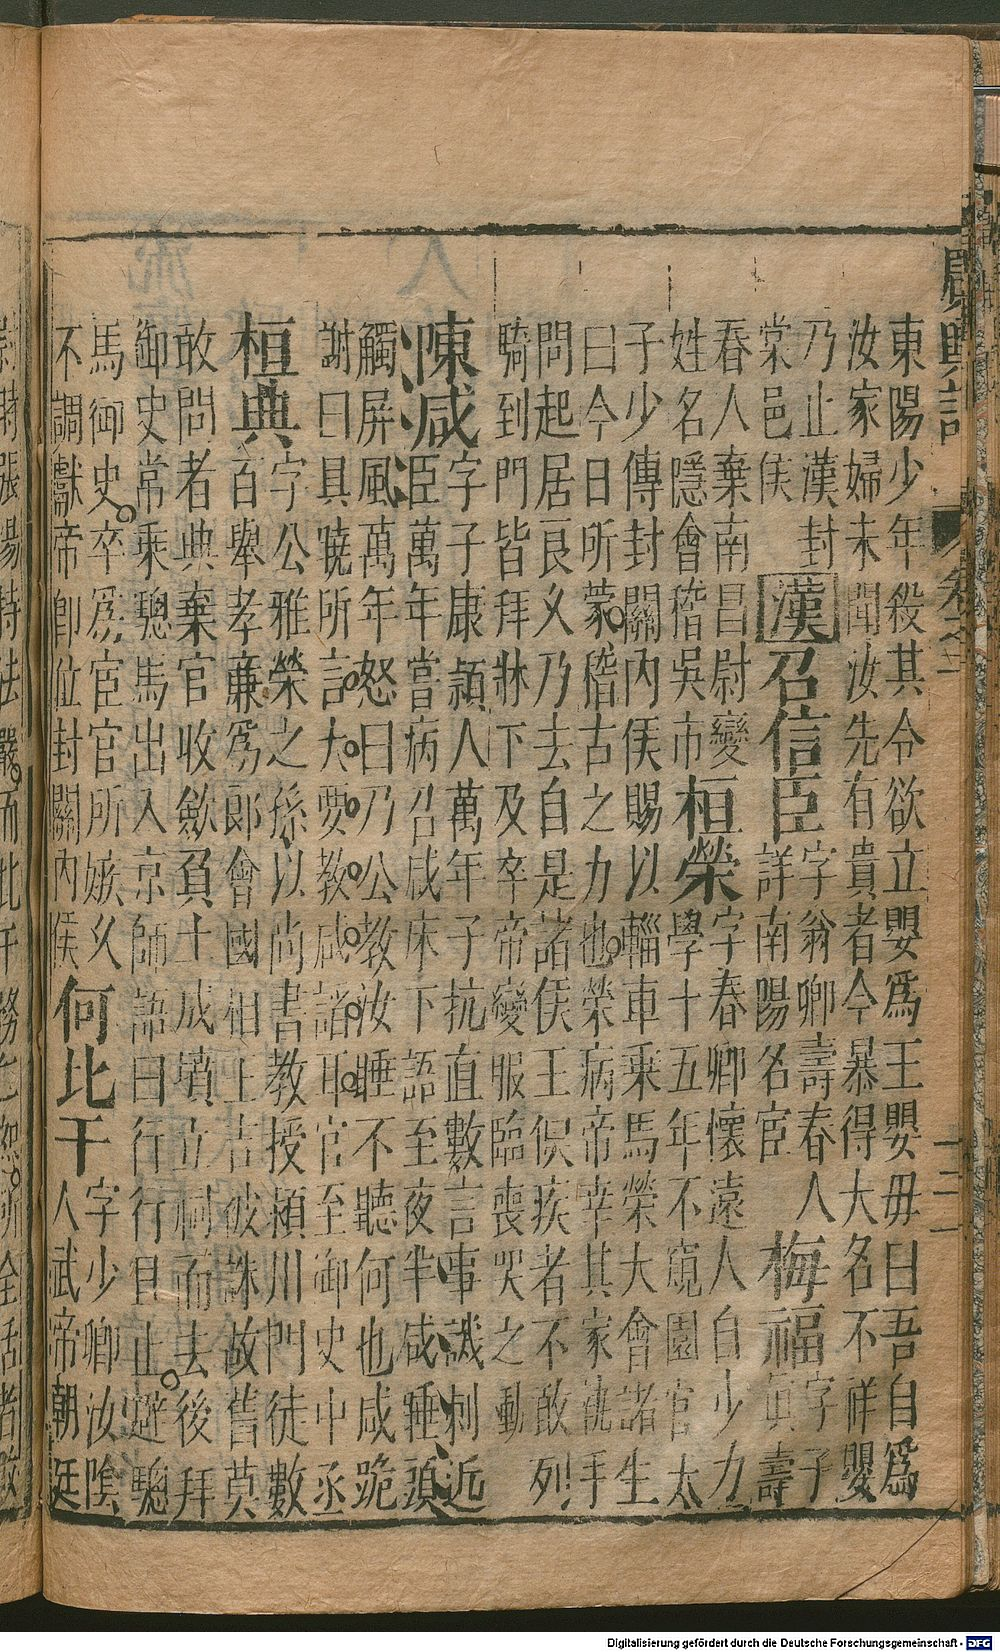 東陽少年殺其令欲立嬰爲王嬰毋曰吾自爲
汝家婦未聞汝先有貴者今暴得大名不祥嬰
乃止漢封
棠邑侯
漢召信臣
字翁卿壽春人
詳南陽名宦
梅福
字子
眞壽
春人棄南昌尉變
姓名隱會稽吳市
桓榮
字春卿懷遠人自少力
學十五年不窺園官太
子少傳封關內侯賜以輜車乘馬榮大會諸生
曰今日所蒙稽古之力也榮病帝幸其家執手
問起居良久乃去自是諸侯王候疾者不敢列
騎到門皆拜牀下及卒帝變服臨喪哭之動
陳咸
字子康頴人萬年子抗直數言事譏刺近
臣萬年嘗病召咸床下語至夜半咸睡頭
觸屏風萬年怒曰乃公教汝睡不聽何也咸跪
謝曰具曉所言大要教咸諂耳官至御史中丞
桓典
字公雅榮之孫以尚書教授頴川門徒數
百舉孝廉爲郎會國相王吉被誅故舊莫
敢問者典棄官收斂負土成墳立祠而去後拜
御史常乘驄馬出入京師語曰行行且止避驄
馬御史卒爲宦官所嫉久
不調獻帝卽位封關內侯
何比干
字少卿汝陰
人武帝朝廷
張湯持法嚴而比干務仁恕所全活者數
Digitalisierung gefördert durch die Deutsche Forschungsgemeinschaft - DFG